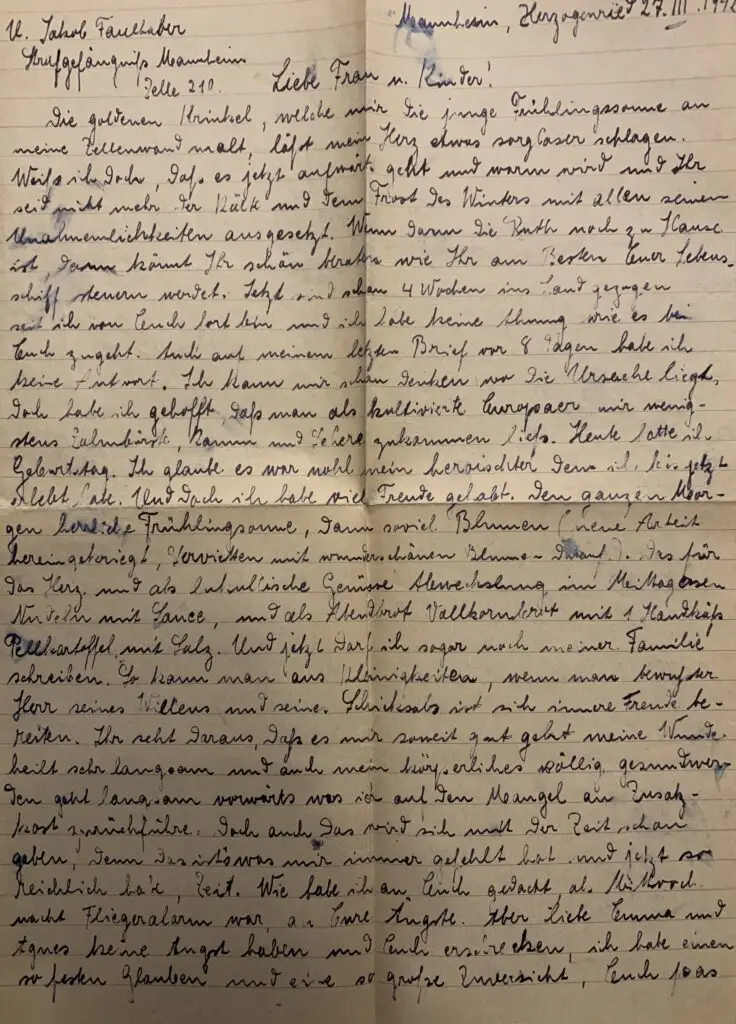 U. Jakob Faulhaber
Mannheim, Herzogenried 27. III. 1942
Strafgefängniß Mannheim
Zelle 210.
Liebe Frau u. Kinder!
Die goldenen Krinkel, welche mir die junge Frühlingssonne an
meine Zellenwand malt, läßt mein Herz etwas sorgloser schlagen.
Weiß ich doch, daß es jetzt aufwärts geht und warm wird und Ihr
seid nicht mehr der Kält und dem Frost des Winters mit allen seinen
Unahnemlichkeiten ausgesetzt. Wenn dann die Ruth noch zu Hause
ist, dann könnt Ihr schön beraten wie Ihr am Besten Euer Lebens-
schiff steuern werdet. Jetzt sind schon 4 Wochen ins Land gezogen
seit ich von Euch fort bin und ich habe keine Ahnung wie es bei
Euch zugeht. Auch auf meinem letzten Brief vor 8 Tagen habe ich
keine Antwort. Ich kann mir schon denken wo die Ursache liegt,
doch habe ich gehofft, daß man als kultivierte Europäer mir wenig-
stens Zahnbürst, Kamm und Schere zukommen ließ. Heute hatte ich
Geburtstag. Ich glaube es war wohl mein heroischter den ich bis jetzt
erlebt habe. Und doch ich habe viel Freude gehabt. Den ganzen Mor-
gen herrliche Frühlingsonne, dann soviel Blumen (neue Arbeit
hereingekriegt, Servietten mit wunderschönen Blumen darauf). Das für
das Herz und als lukullische Genüsse Abwechslung im Mittagessen
Nudeln mit Sauce, und als Abendbrot Vollkornbrot mit 1 Handkäß
Pellkartoffel mit Salz. Und jetzt darf ich sogar noch meiner Familie
schreiben. So kann man aus Kleinigkeiten, wenn man bewußter
Herr seines Willens und seines Schicksals ist sich innere Freude be-
reiten. Ihr seht daraus, daß es mir soweit gut geht meine Wunde
heilt sehr langsam und auch mein körperliches völlig gesundwer-
den geht langsam vorwärts was ich auf den Mangel an Zusatz-
kost zurückführe. Doch auch das wird sich mit der Zeit schon
geben, denn das ists was mir immer gefehlt hat und jetzt so
reichlich habe, Zeit. Wie habe ich an Euch gedacht, als Mittwoch
nacht Fliegeralarm war, an Eure Ängste. Aber Liebe Emma und
Agnes keine Angst haben und Euch erschrecken, ich habe einen
so festen Glauben und eine so große Zuversicht, Euch